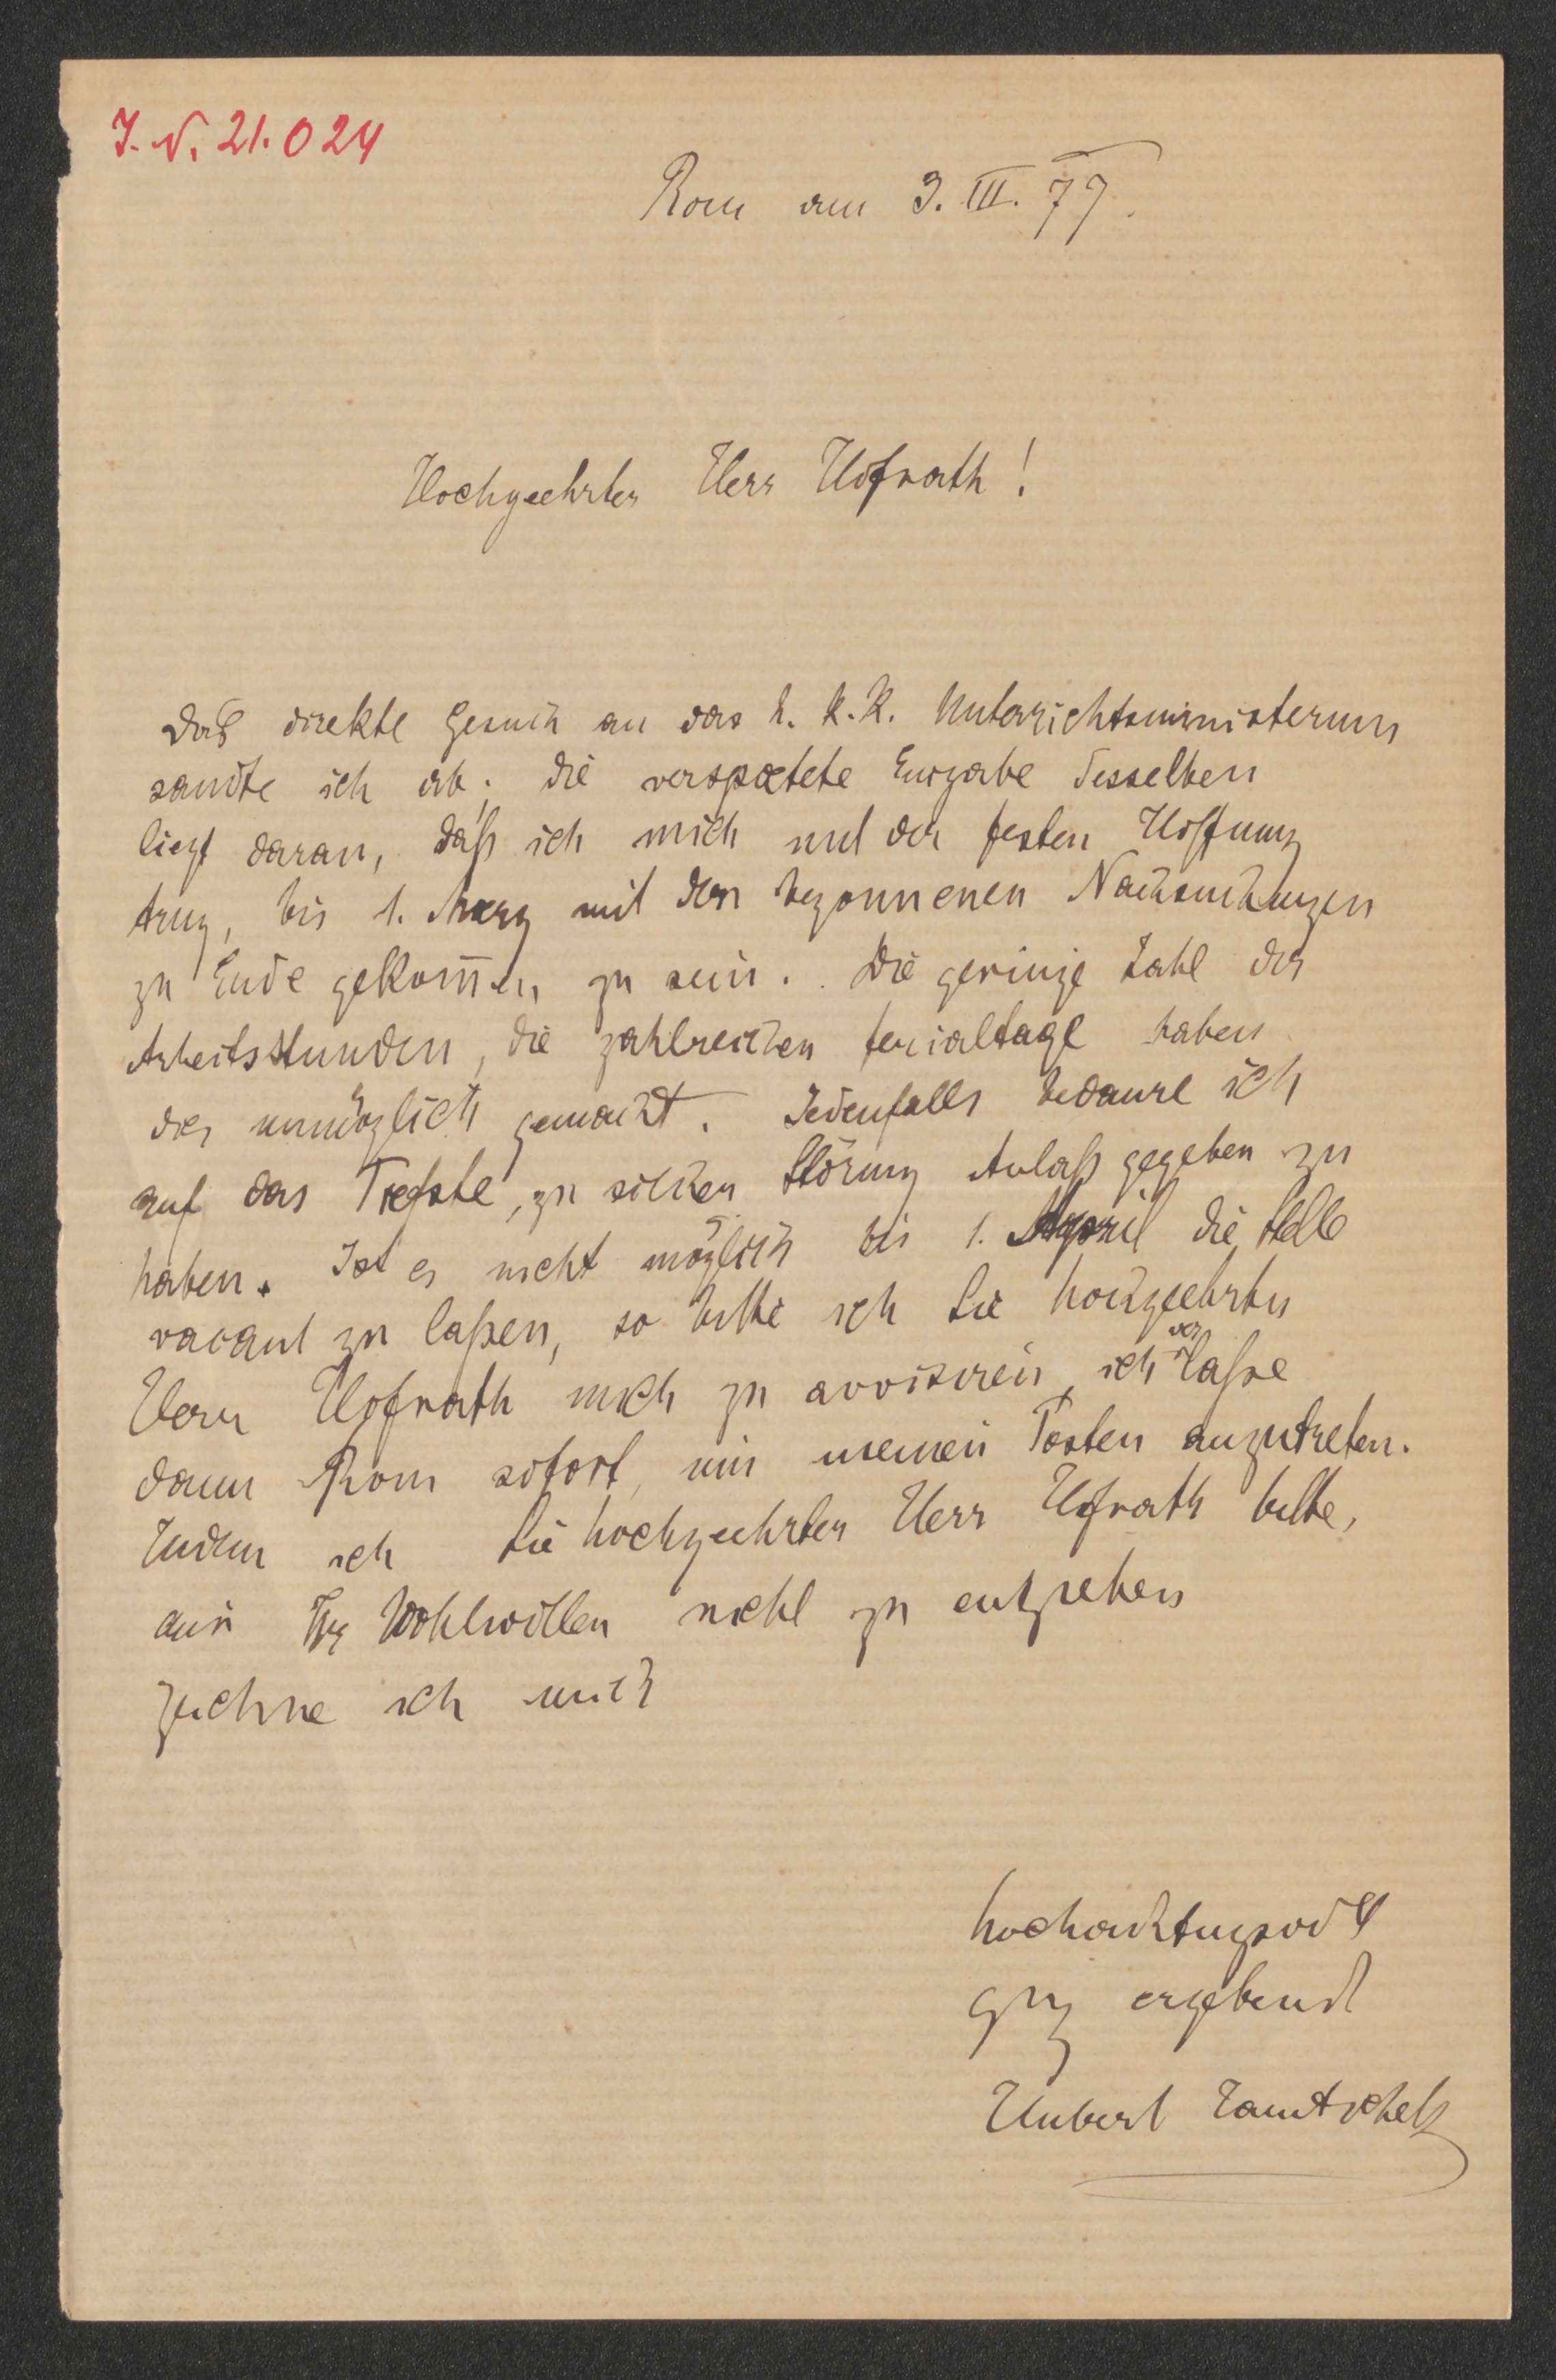 J. N. 21.024
Rom am 3. III. 77.
Hochgeehrter Herr Hofrath!
Das direkte Gesuch an das h. k. k. Unterrichtsministerium
sandte ich ab; die verspaetete Eingabe desselben
liegt daran, daß ich mich mit der festen Hoffnung
trug, bis 1. Maerz mit den begonnenen Nachsuchungen
zu Ende gekom̄en zu sein. Die geringe Zahl der
Arbeitsstunden, die zahlreichen Ferialtage haben
das unmöglich gemacht. Jedenfalls bedaure ich
auf das Tiefste, zu solcher Störung Anlaß gegeben zu
haben. Ist es nicht möglich bis 1. April die Stelle
vacant zu laßen, so bitte ich Sie hochgeehrter
Herr Hofrath mich zu avvisiren, ich verlaße
dann Rom sofort, um meinen Posten anzutreten.
Indem ich Sie hochgeehrter Herr Hofrath bitte,
mir Ihr Wohlwollen nicht zu entziehen
zeichne ich mich
hochachtungsvoll
ganz ergebenst
Hubert Janitschek